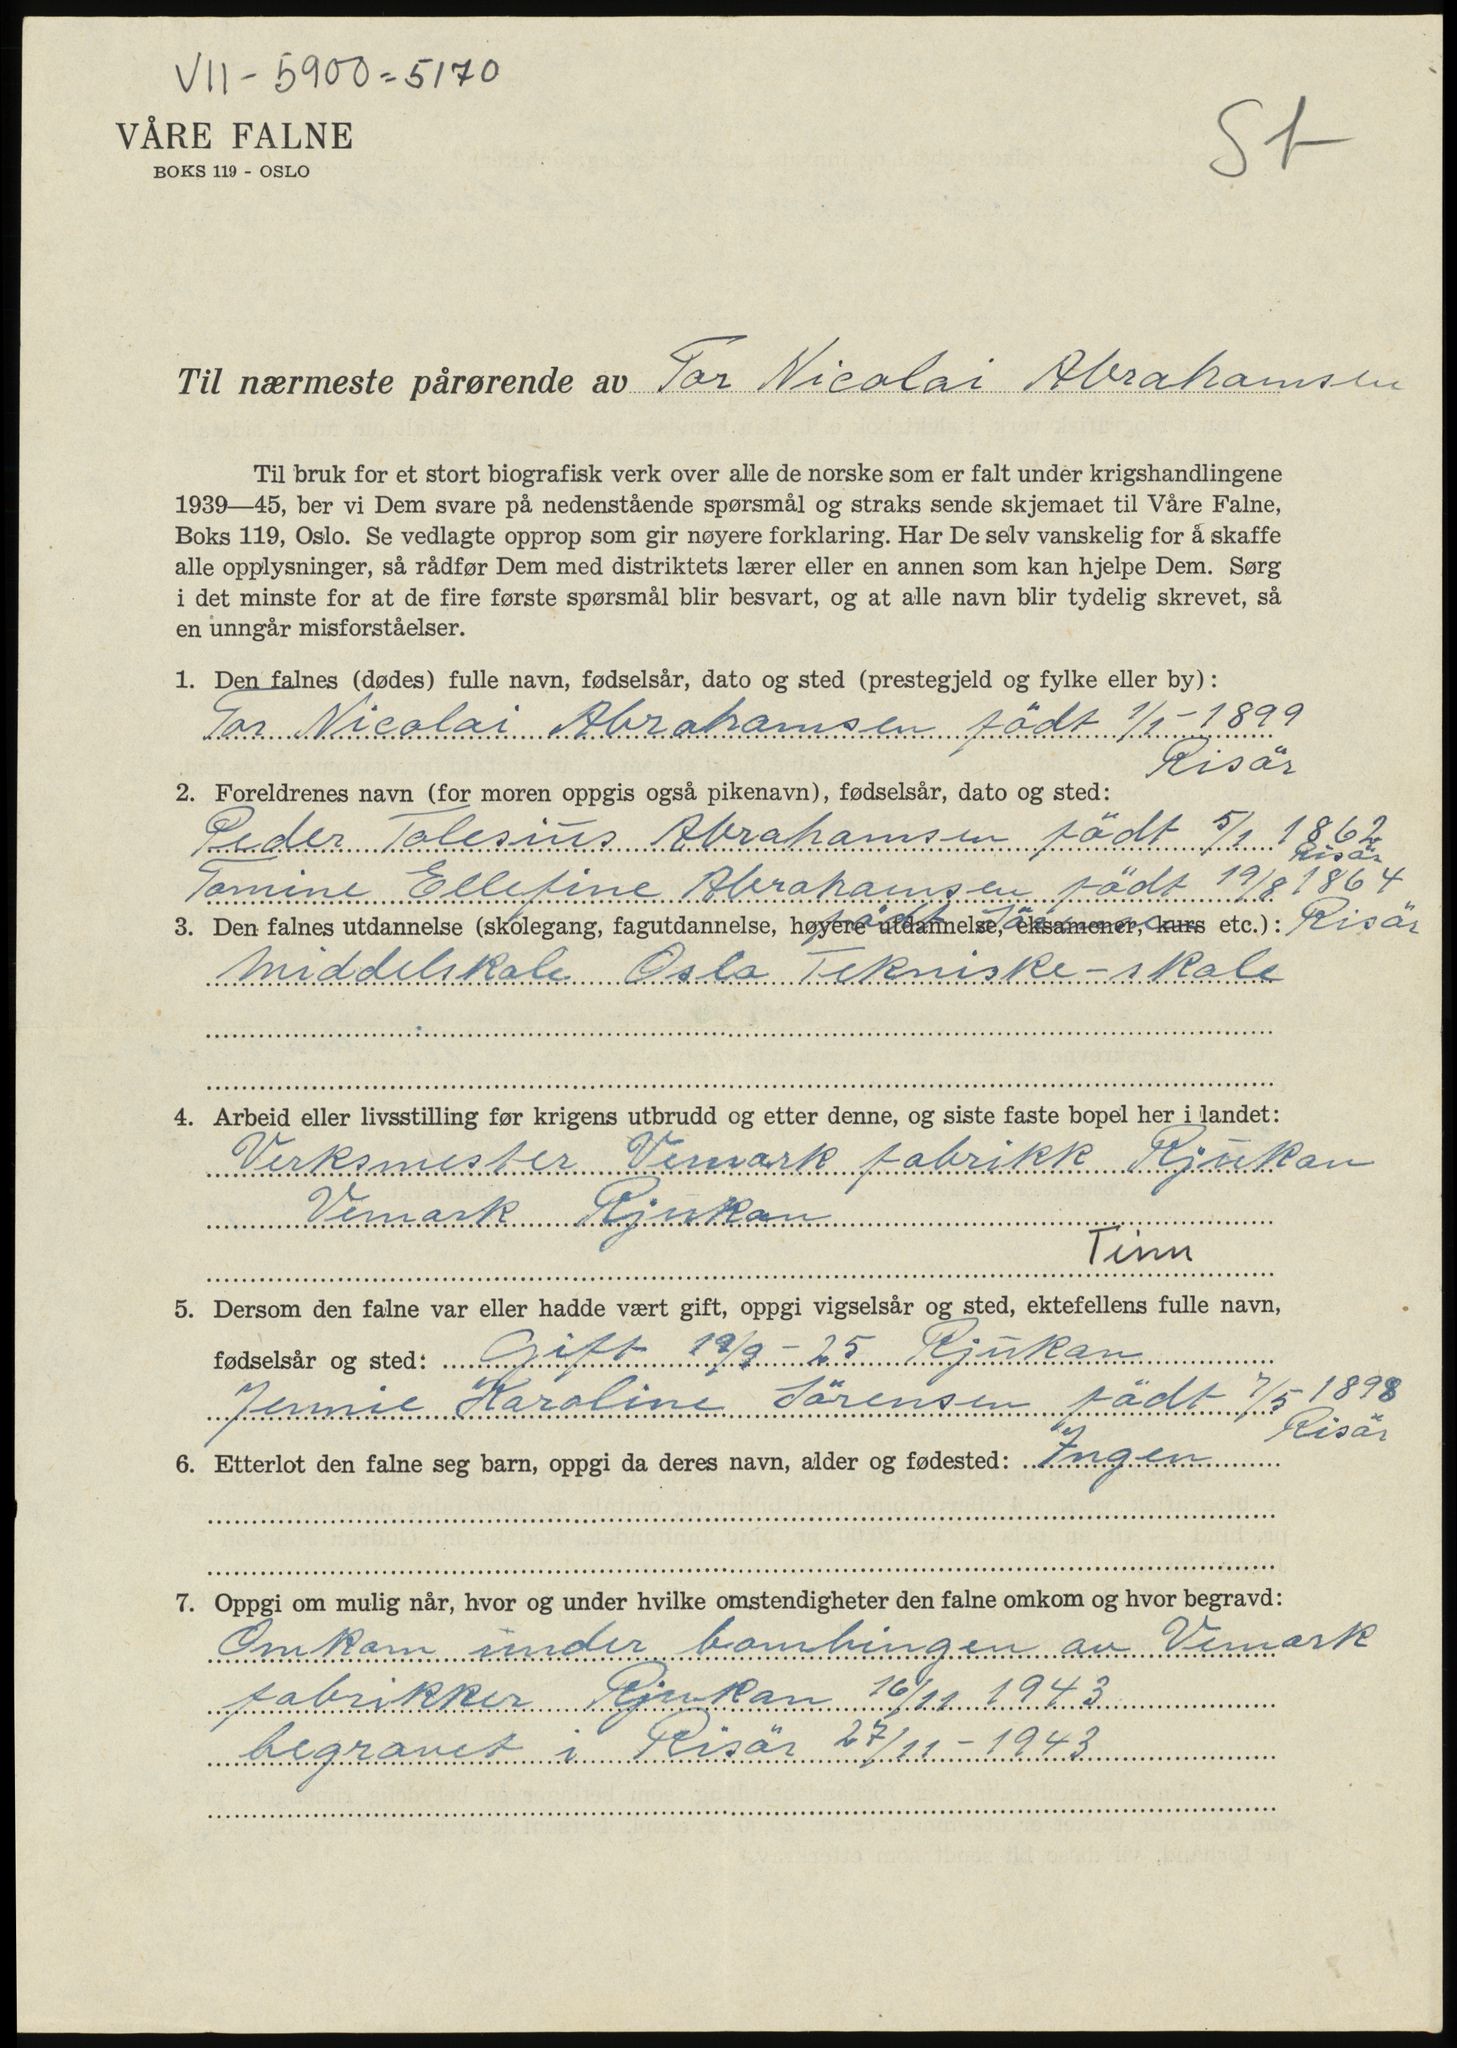 VII - 5900 = 5170
St
VÅRE FALNE
BOKS 119 - OSLO
Til nærmeste pårørende av Tor Nicolai Abrahamsen
Til bruk for et stort biografisk verk over alle de norske som er falt under krigshandlingene
1939—45, ber vi Dem svare på nedenstående spørsmål og straks sende skjemaet til Våre Falne,
Boks 119, Oslo. Se vedlagte opprop som gir nøyere forklaring. Har De selv vanskelig for å skaffe
alle opplysninger, så rådfør Dem med distriktets lærer eller en annen som kan hjelpe Dem. Sørg
i det minste for at de fire første spørsmål blir besvart, og at alle navn blir tydelig skrevet, så
en unngår misforståelser.
1. Den falnes (dødes) fulle navn, fødselsår, dato og sted (prestegjeld og fylke eller by):
Tor Nicolai Abrahamsen födt 1/1 - 1899
Risör
2. Foreldrenes navn (for moren oppgis også pikenavn), fødselsår, dato og sted:
Peder Tolesius Abrahamsen födt 5/1 1862
Risör
Tomine Ellefine Abrahamsen födt 19/8 1864
födt
Risör
3. Den falnes utdannelse (skolegang, fagutdannelse, høyere utdannelse, eksamener, kurs etc.):
Middelskole Oslo Tekniske-skole
4. Arbeid eller livsstilling før krigens utbrudd og etter denne, og siste faste bopel her i landet:
Verksmester Vemork fabrikk Rjukan
Vemork Rjukan
Tinn
5. Dersom den falne var eller hadde vært gift, oppgi vigselsår og sted, ektefellens fulle navn,
fødselsår og sted: Gift 19/9 - 25 Rjukan
Jennie Karoline Sörensen födt 7/5 - 1898
Risör
6. Etterlot den falne seg barn, oppgi da deres navn, alder og fødested: Ingen
7. Oppgi om mulig når, hvor og under hvilke omstendigheter den falne omkom og hvor begravd:
Omkom under bombingen av Vemork
fabrikker Rjukan 16/11 1943
begravet i Risör 27/11 - 1943